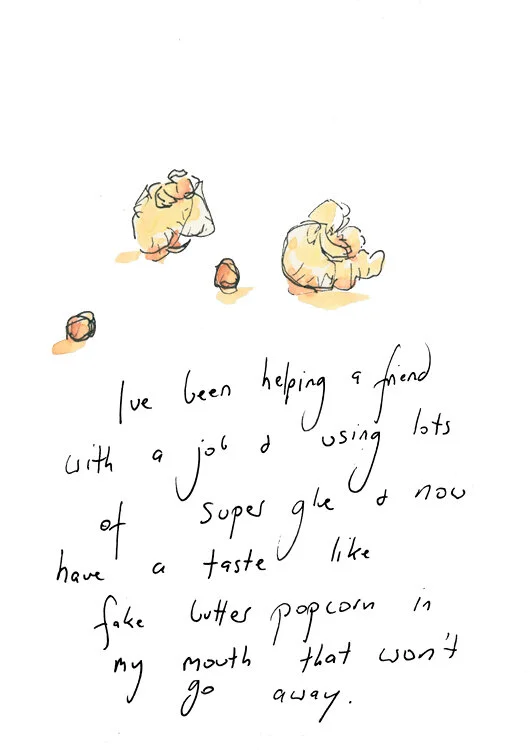 Ive been helping a friend
with a job & using lots
of super glue & now
have a taste like
fake butter popcorn in
my mouth that won't
go away.